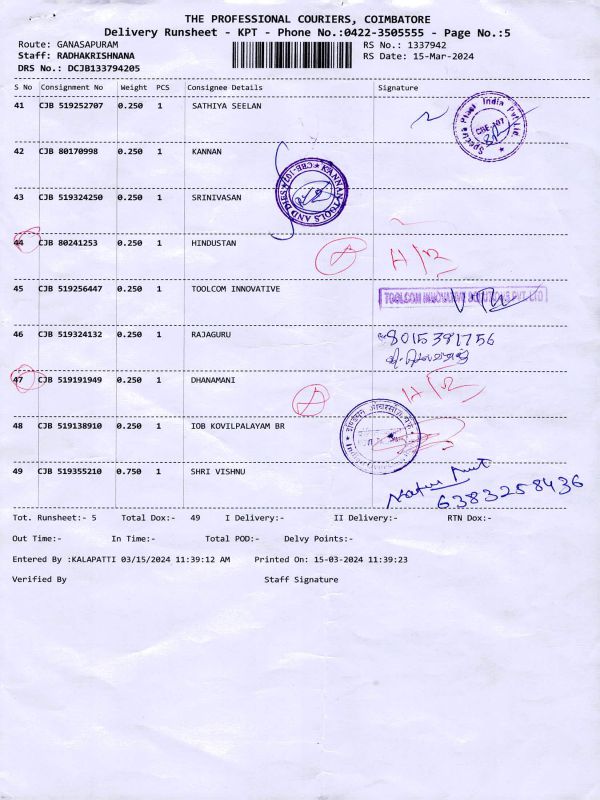 THE PROFESSIONAL COURIERS, COIMBATORE
Delivery Runsheet - KPT - Phone No.:0422-3505555 - Page No.:5
Route: GANASAPURAM
RS No.: 1337942
Staff: RADHAKRISHNANA
RS Date: 15-Mar-2024
DRS No.: DCJB133794205
S No Consignment No Weight PCS Consignee Details Signature
41 CJB 519252707 0.250 1 SATHIYA SEELAN
CBE
42 CJB 80170998 0.250 1 KANNAN
KANNAN TOOLS AND DIES ★ CBE-107 ★
43 CJB 519324250 0.250 1 SRINIVASAN
44 CJB 80241253 0.250 1 HINDUSTAN
45 CJB 519256447 0.250 1 TOOLCOM INNOVATIVE
TOOLCOM INNOVATIVE SOLUTIONS PVT. LTD
46 CJB 519324132 0.250 1 RAJAGURU
8015391756
47 CJB 519191949 0.250 1 DHANAMANI
48 CJB 519138910 0.250 1 IOB KOVILPALAYAM BR
49 CJB 519355210 0.750 1 SHRI VISHNU
6383258436
Tot. Runsheet:- 5 Total Dox:- 49 I Delivery:- II Delivery:- RTN Dox:-
Out Time:- In Time:- Total POD:- Delvy Points:-
Entered By :KALAPATTI 03/15/2024 11:39:12 AM Printed On: 15-03-2024 11:39:23
Verified By Staff Signature